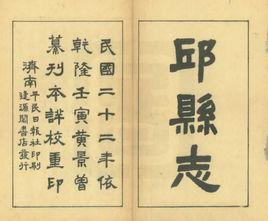 邱縣志
民國二十二年依
乾隆壬寅黃景曾
纂刊本詳校重印
濟南平民日報社印刷
逢源閣書店發行